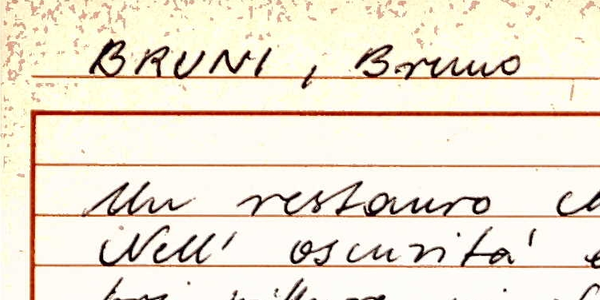 BRUNI, Bruno
Un restauro
Nell' oscurità